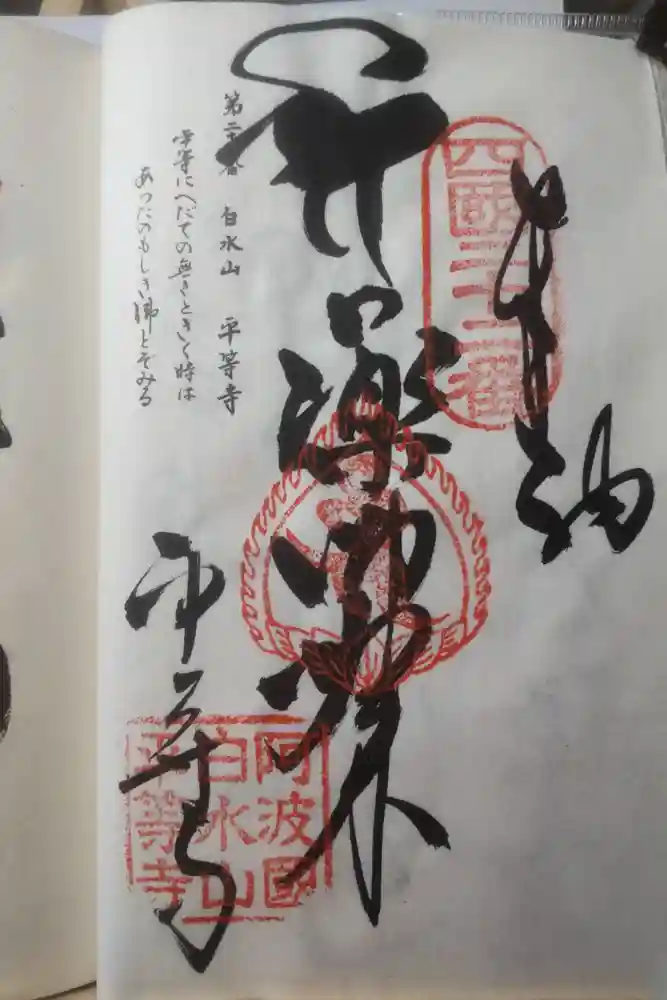 奉納
四國二十二番
薬師如来
第二 番 白水山 平等寺
平等にへだての無きときく時は
あつたのもしき佛とぞみる
平等寺
阿波國
白水山
平等寺